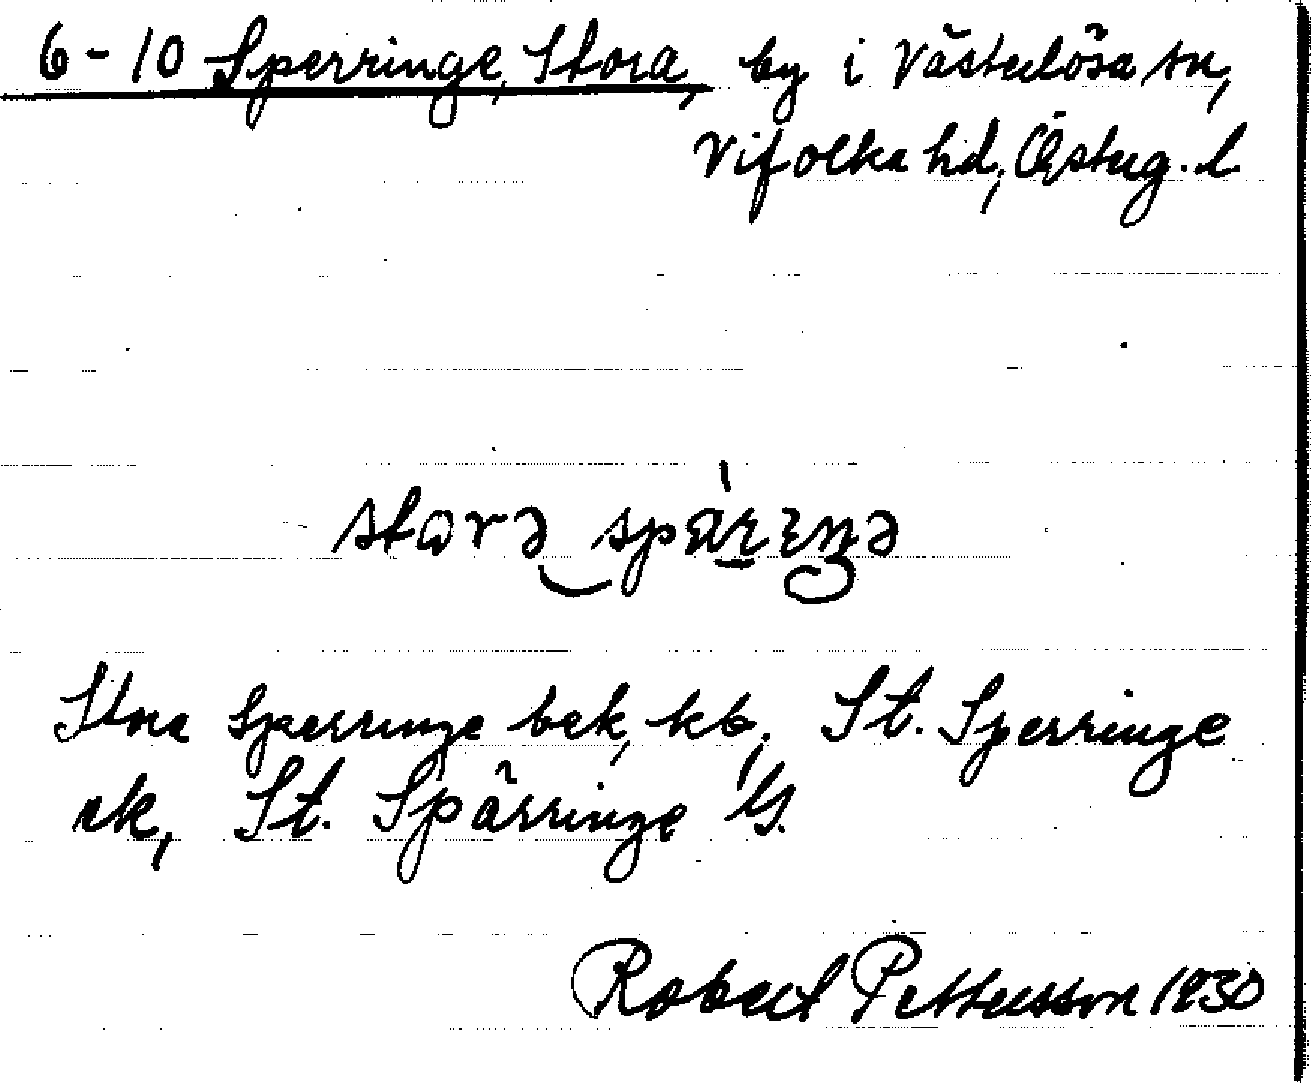 6-10 Sperringe, Stora, by i Västerlösa sn,
Vifolka hd, Österg. l.
Stora Sperringe bek, kb, St. Sperringe
ek, St. Spärringe
Robert Pettersson 1930